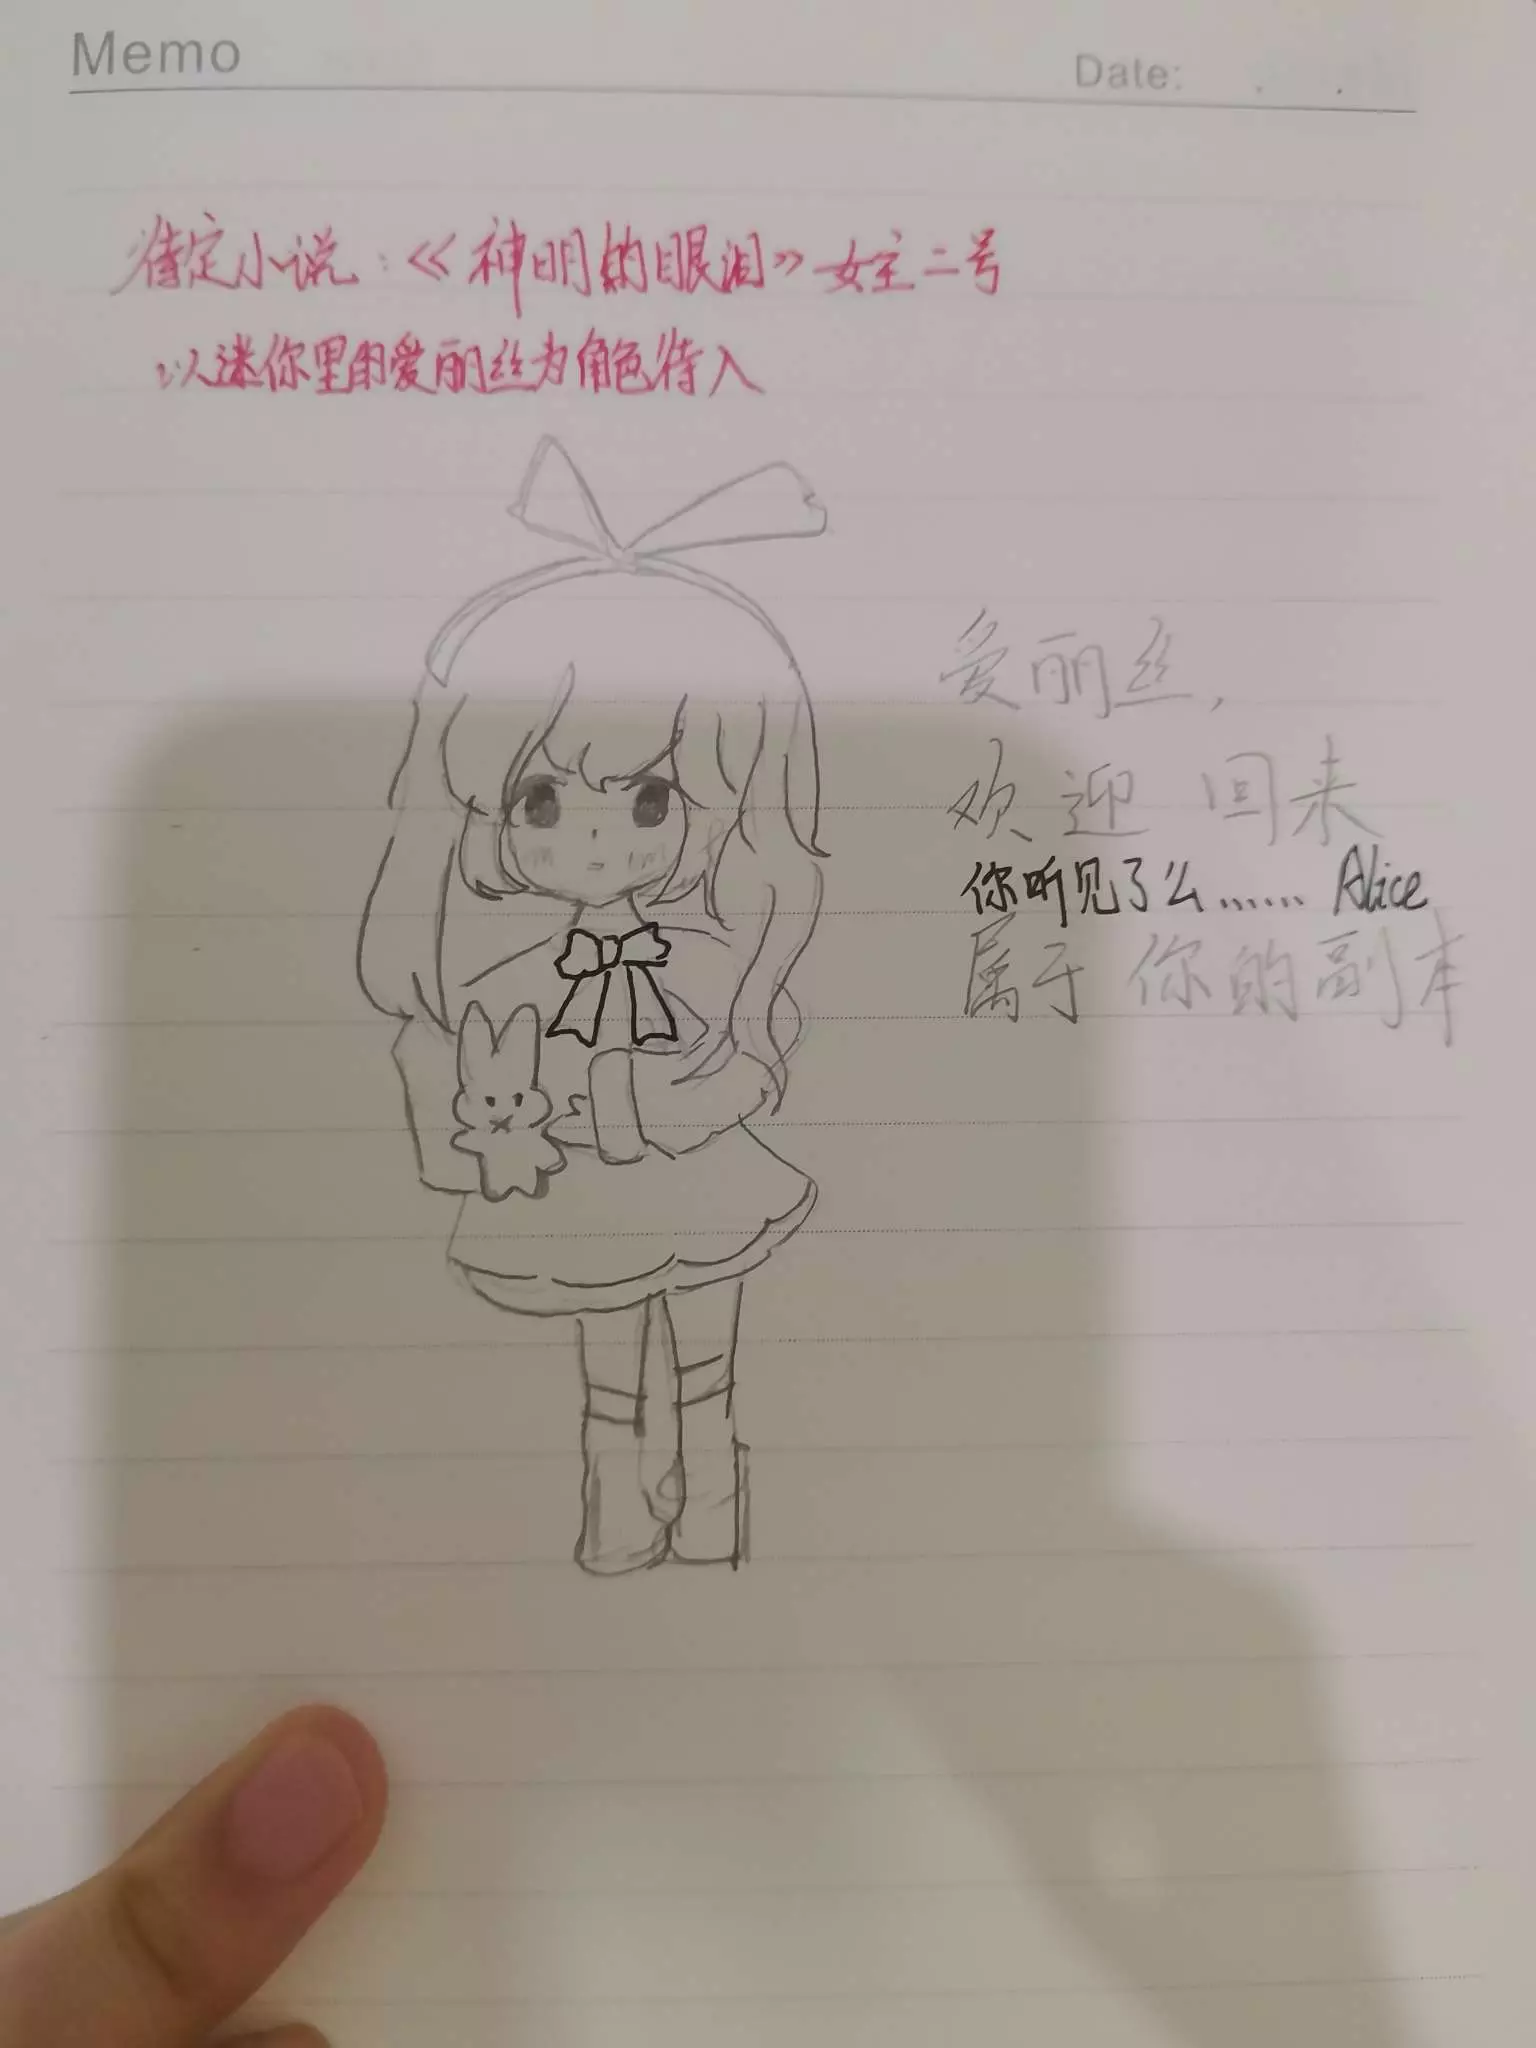 Memo
Date:
待定小说：《神明的眼泪》女主二号
以迷你里的爱丽丝为角色待入
爱丽丝，
欢迎 回来
你听见了么...... Alice
属于你的副本